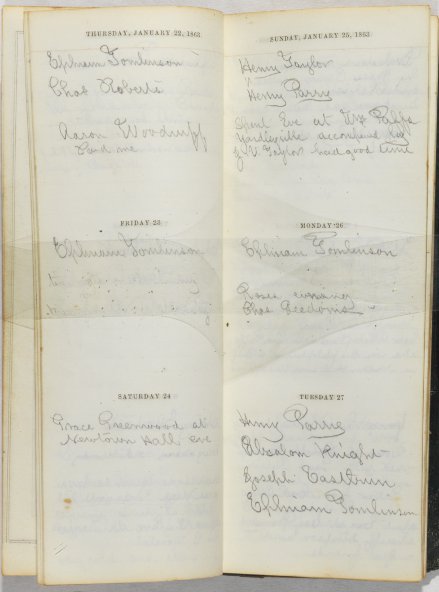 THURSDAY, JANUARY 22, 1863
Ephraim Tomlinson
Chas Roberts
Aaron Woodruff
Paid me
FRIDAY 23
Ephraim Tomlinson
SATURDAY 24
Grace Greenwood at
Newtown Hall eve
SUNDAY, JANUARY 25, 1863
Henry Taylor
" Henry Parry
Spent Eve at
Yardleyville
Taylor had good time
MONDAY 26
Ephriam Tomlinson
Roses evening
Chas Leedoms
TUESDAY 27
Henry Parrie
Absalom Knight
Joseph Eastburn
Ephriam Tomlinson